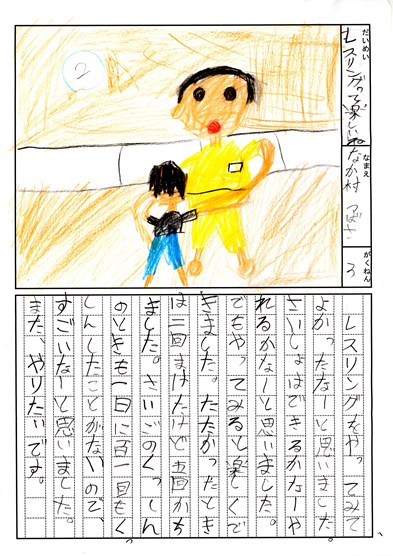 だいめい
レスリングって楽しいね
なまえ
なか村 つばさ
がくねん
3
2
レスリングをやってみて
よかったなーと思いました。
さいしょはできるかなーや
れるかなーと思いました。
でもやってみると楽しくで
きました。たたかったとき
は三回まけたけど五回かち
ました。さいごのくっしん
のときも一日に百一回もくっ
しんしたことがないので、
すごいなーと思いました。
また、やりたいです。